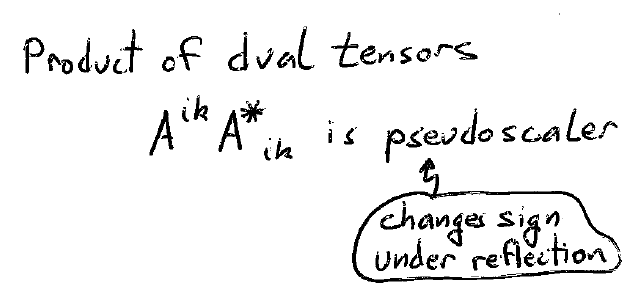 Product of dual tensors
A^{ik} A^*_{ik} is pseudoscaler
changes sign
under reflection